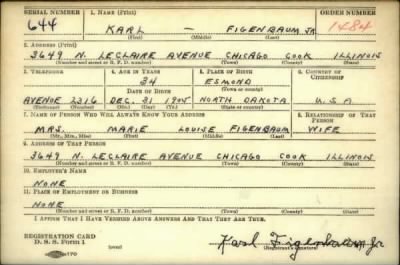 SERIAL NUMBER 1. NAME (Print) ORDER NUMBER
644 KARL — FIGENBAUM, JR. 1484
(First) (Middle) (Last)
2. ADDRESS (Print)
3649 N. LECLAIRE AVENUE CHICAGO COOK ILLINOIS
(Number and street or R. F. D. number) (Town) (County) (State)
3. TELEPHONE 4. AGE IN YEARS 5. PLACE OF BIRTH 6. COUNTRY OF CITIZENSHIP
34 ESMOND
DATE OF BIRTH (Town or county)
AVENUE 2316 DEC. 31 1905 NORTH DAKOTA U.S.A
(Exchange) (Number) (Mo.) (Day) (Yr.) (State or country)
7. NAME OF PERSON WHO WILL ALWAYS KNOW YOUR ADDRESS 8. RELATIONSHIP OF THAT PERSON
MRS. MARIE LOUISE FIGENBAUM WIFE
(Mr., Mrs., Miss) (First) (Middle) (Last)
9. ADDRESS OF THAT PERSON
3649 N. LECLAIRE AVENUE CHICAGO COOK ILLINOIS
(Number and street or R. F. D. number) (Town) (County) (State)
10. EMPLOYER'S NAME
NONE
11. PLACE OF EMPLOYMENT OR BUSINESS
NONE
(Number and street or R. F. D. number) (Town) (County) (State)
I AFFIRM THAT I HAVE VERIFIED ABOVE ANSWERS AND THAT THEY ARE TRUE.
REGISTRATION CARD
D. S. S. Form 1 Karl Figenbaum Jr
(Registrant's signature)